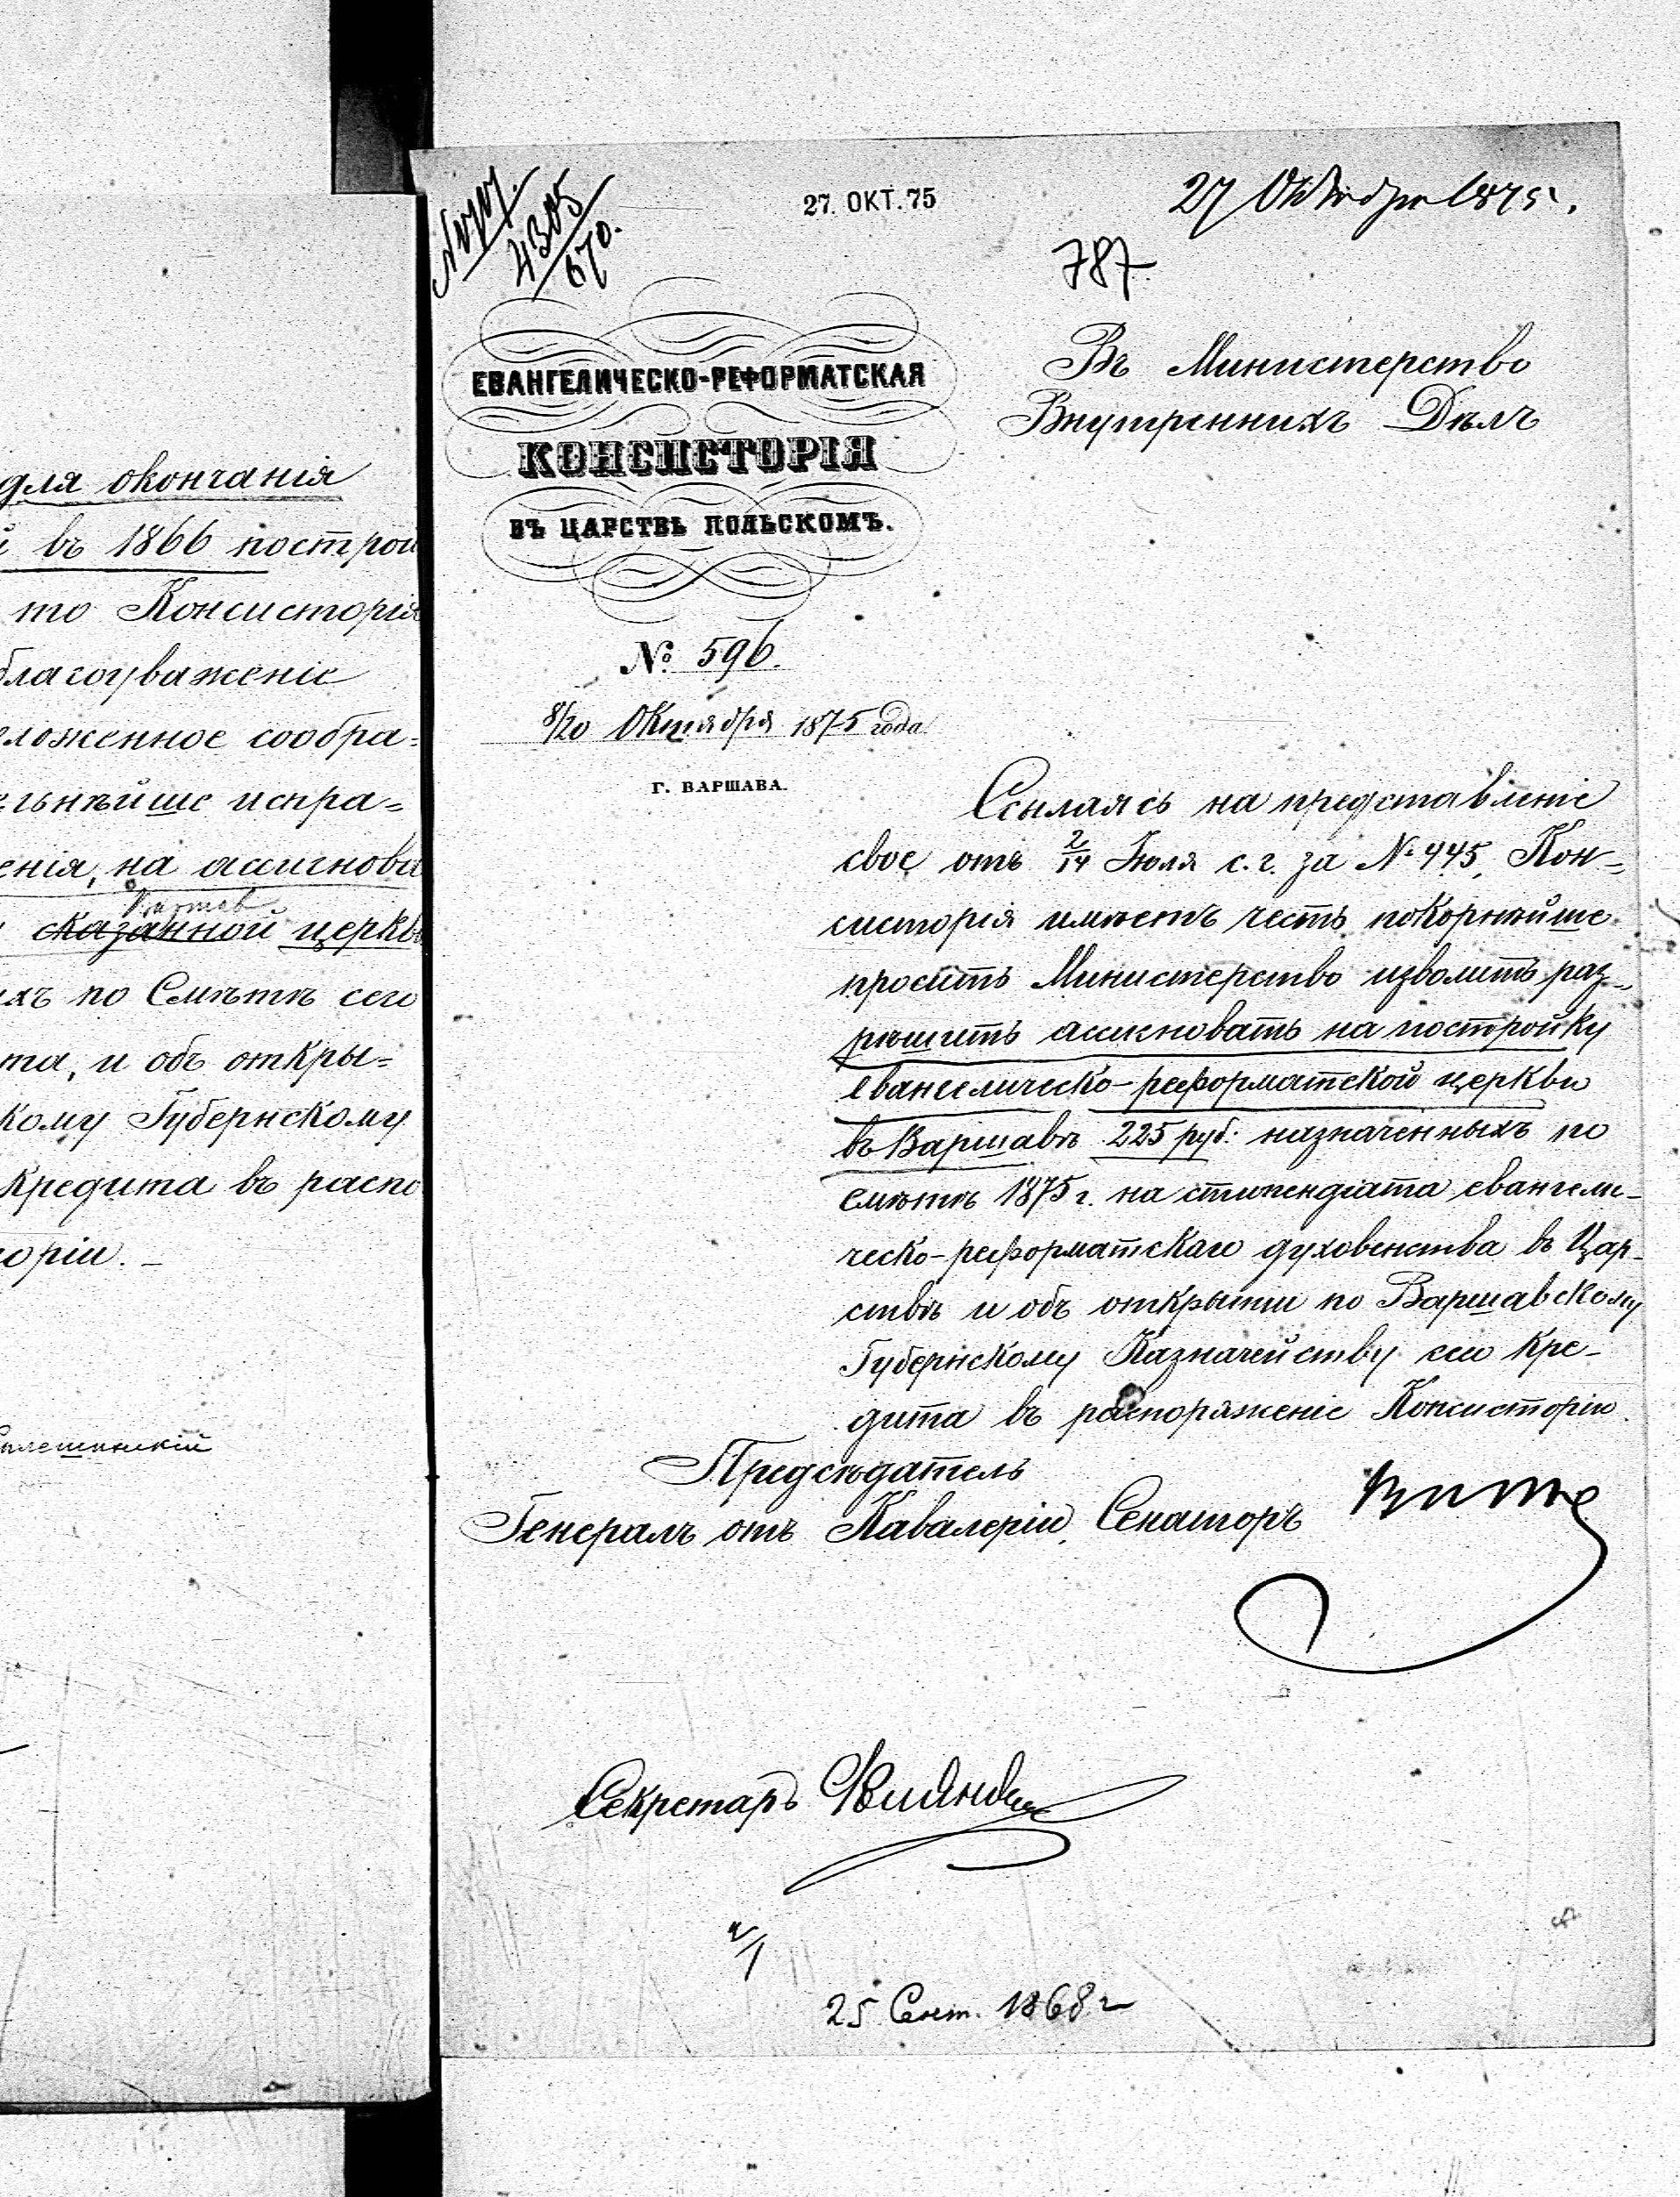 для окончанія
въ 1866 построй
то Консисторія
благоуваженіе
ложенное сообра=
ельнѣйше испра=
енія, на ассигнова
сказанной церкв
ихъ по Смѣтѣ сего
та, и объ откры=
кому Губернскому
кредита въ распо
оріи. –
27. ОКТ. 75
27 Октября 1875 г.
4305
670.
787
ЕВАНГЕЛИЧЕСКО-РЕФОРМАТСКАЯ
КОНСИСТОРІЯ
ВЪ ЦАРСТВѢ ПОЛЬСКОМЪ.
№ 596.
8/20 Октября 1875 года.
Г. ВАРШАВА.
Въ Министерство
Внутреннихъ Дѣлъ
Ссылаясь на представленіе
свое отъ 2/14 Іюля с. г. за № 445, Кон-
систорія имѣетъ честь покорнѣйше
просить Министерство изволить раз-
рѣшить ассигновать на постройку
евангелическо-реформатской церкви
въ Варшавѣ 225 руб: назначенныхъ по
смѣтѣ 1875 г. на стипендіата евангели-
ческо-реформатскаго духовенства въ Цар-
ствѣ и объ открытіи по Варшавскому
Губернскому Казначейству сего кре-
дита въ распоряженіе Консисторіи.
Предсѣдатель
Генералъ отъ Кавалеріи, Сенаторъ Витте
Секретарь
25 Сент. 1868 г